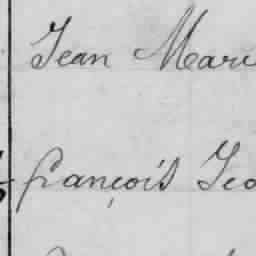 Jean Mari
françois Jea